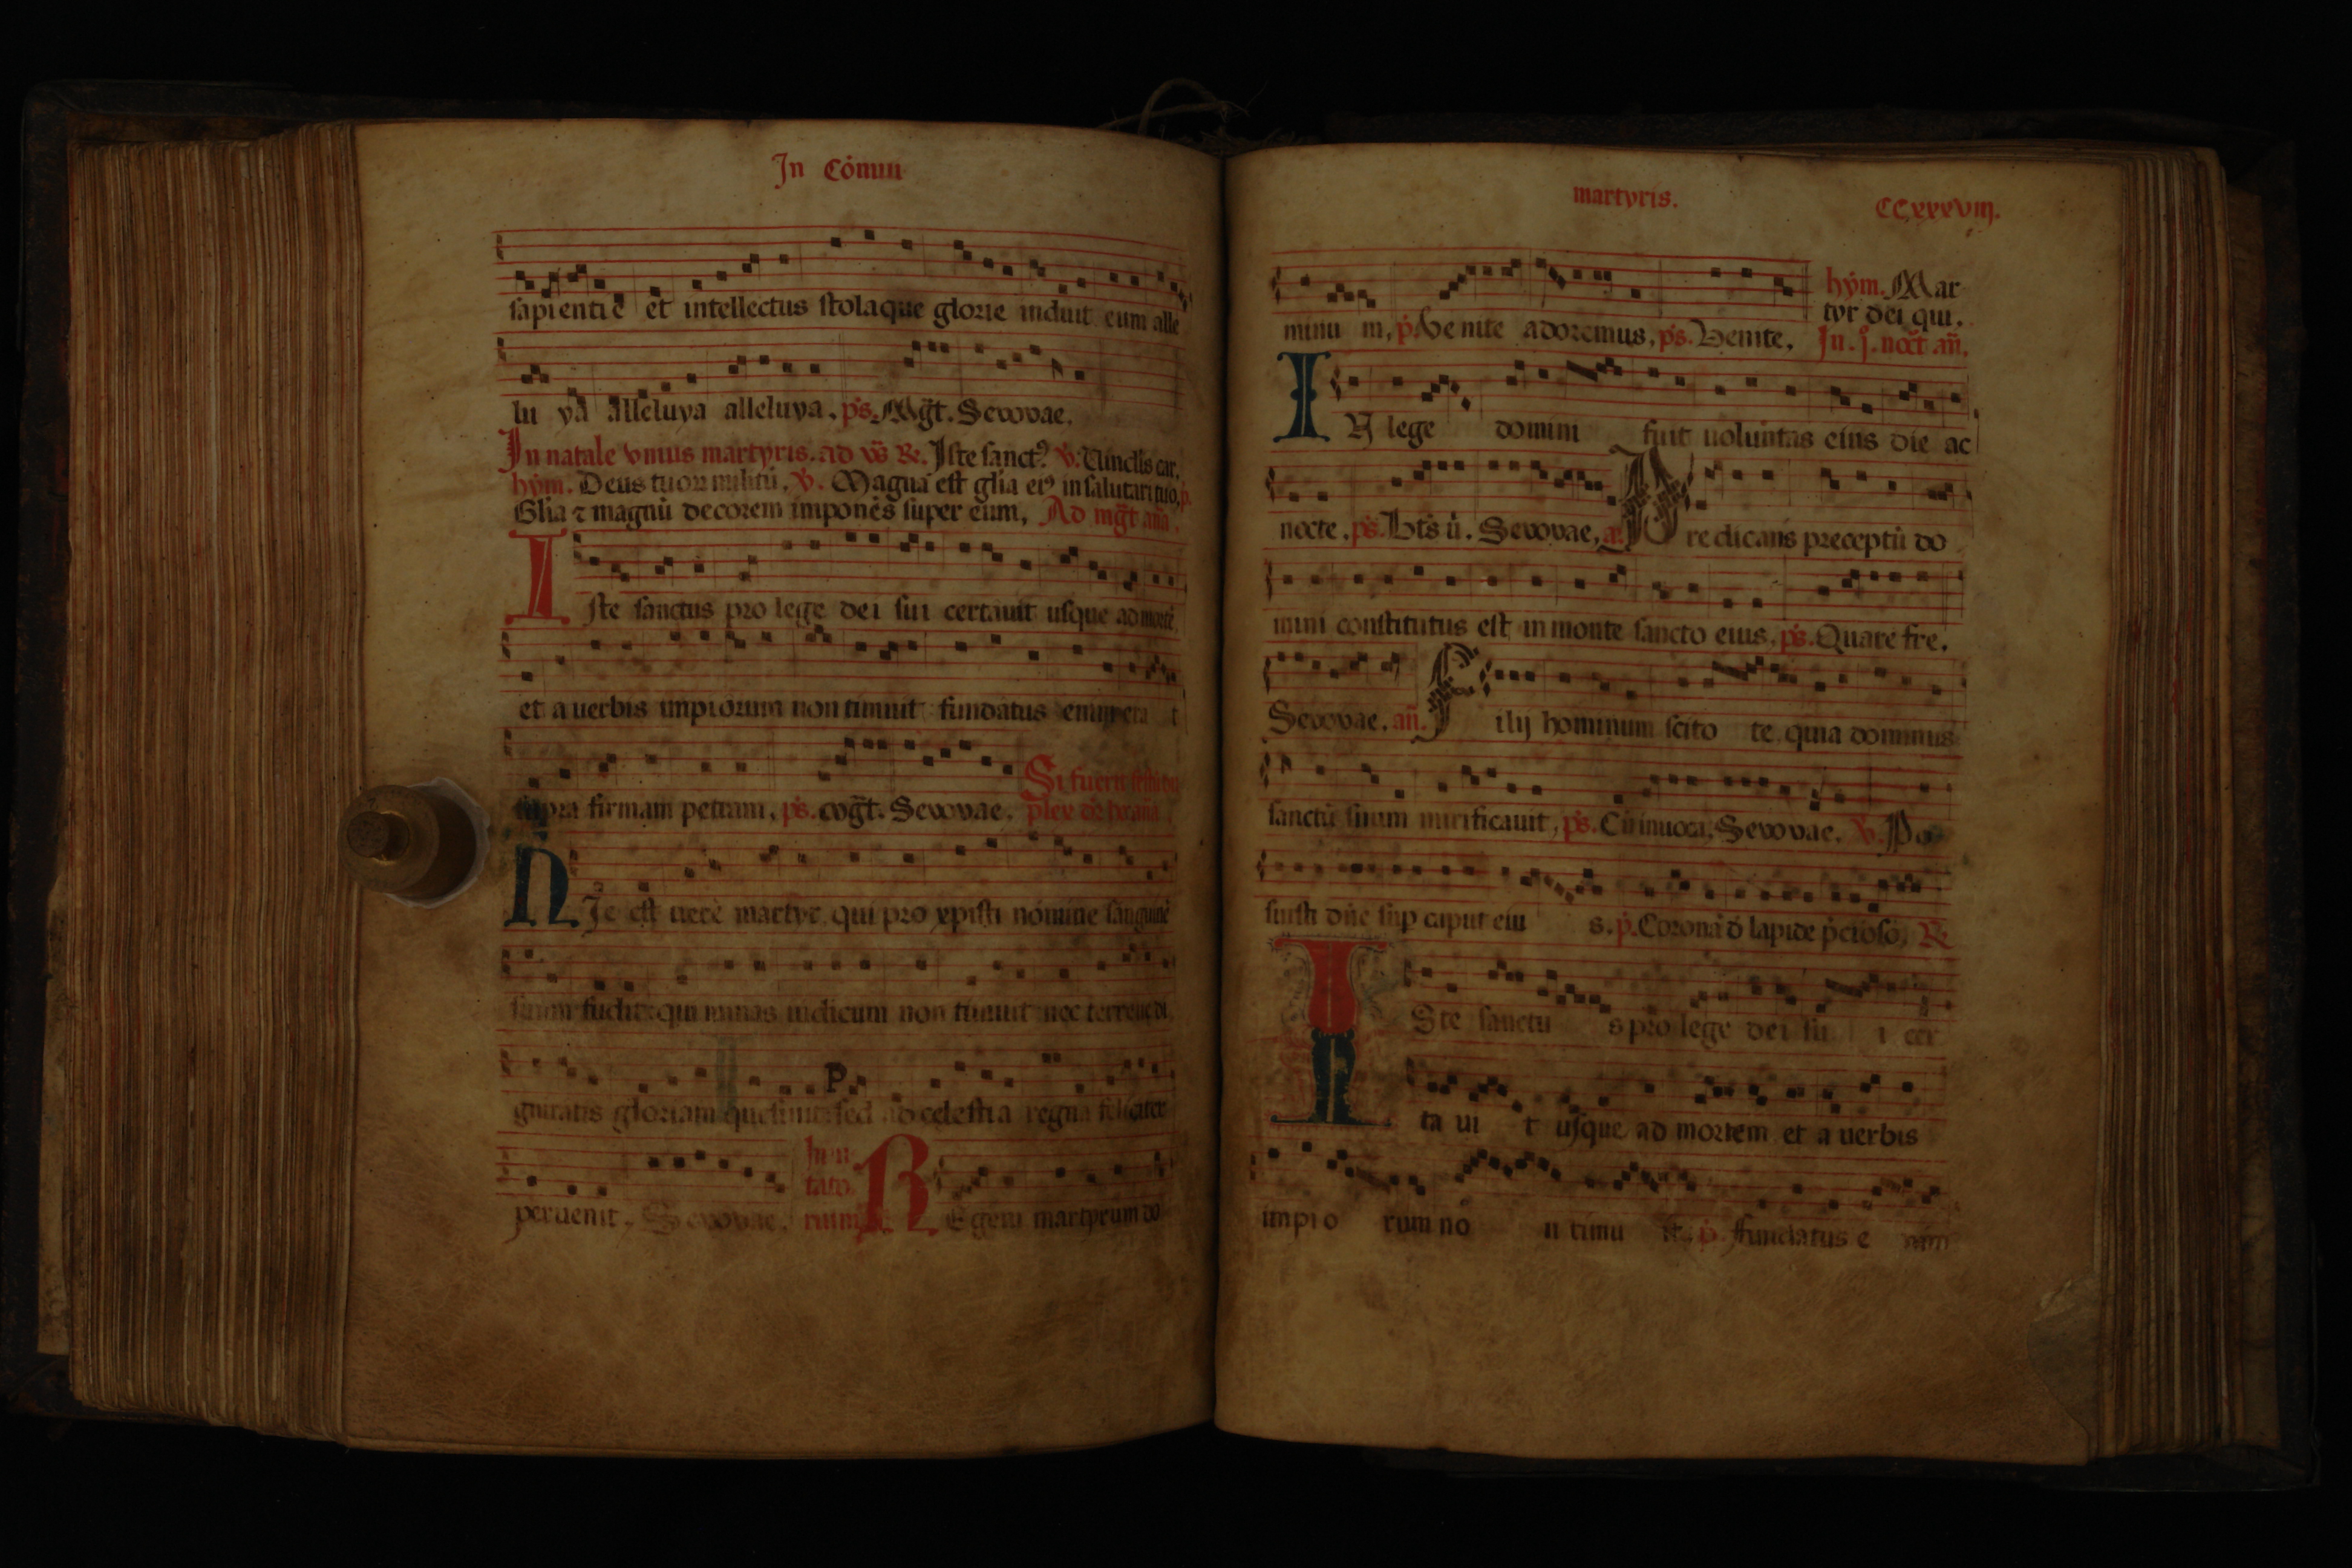 In Cómuni
sapientie et intellectus stolaque glorie induit eum alle
lu ya alleluya alleluya. ps. Mḡt. Seuouae.
In natale vnius martyris. ad vs̄ R. Iste sanctꝰ. v. Tindis car.
hym. Deus tuoꝝ militū. v. Magna est glia eiꝰ in salutari tuo. p.
Glia ⁊ magnū decorem imponēs super eum. Ad mḡt aña.
Iste sanctus pro lege dei sui certauit usque ad mortē
et a uerbis impiorum non timuit fundatus enim erat
supra firmam petram. ps. Seuouae. Si fuerit
Hic est uere martyr qui pro xpisti nómine sanguinē
suum fudit qui minas iudicum non timuit nec terrene di
gnitatis gloriam quesiuit sed ad celestia regna feliciter
P
peruenit. Seuouae. Inui
tato
rium. Regem martyrum do
martyris. CCxxxviij.
minu m. p. Venite adoremus. ps. Venite. hym. Mar
tyr dei qui.
In .j. noct̄. añ.
IN lege domini fuit uoluntas eius die ac
nocte. ps. Bt̄s ū. Seuouae. a. Predicans preceptū do
mini constitutus est in monte sancto eius. ps. Quare fre.
Seuouae. añ. Filij hominum scito te quia dominus
sanctū suum mirificauit. ps. Cū inuoca. Seuouae. v. Po
suisti dñe sup caput eiu s. p. Coronā d lapide pcioso. R
Iste sanctu s pro lege dei su i cer
ta ui t usque ad mortem et a uerbis
impio rum nó n timu it. p. Fundatus e nim